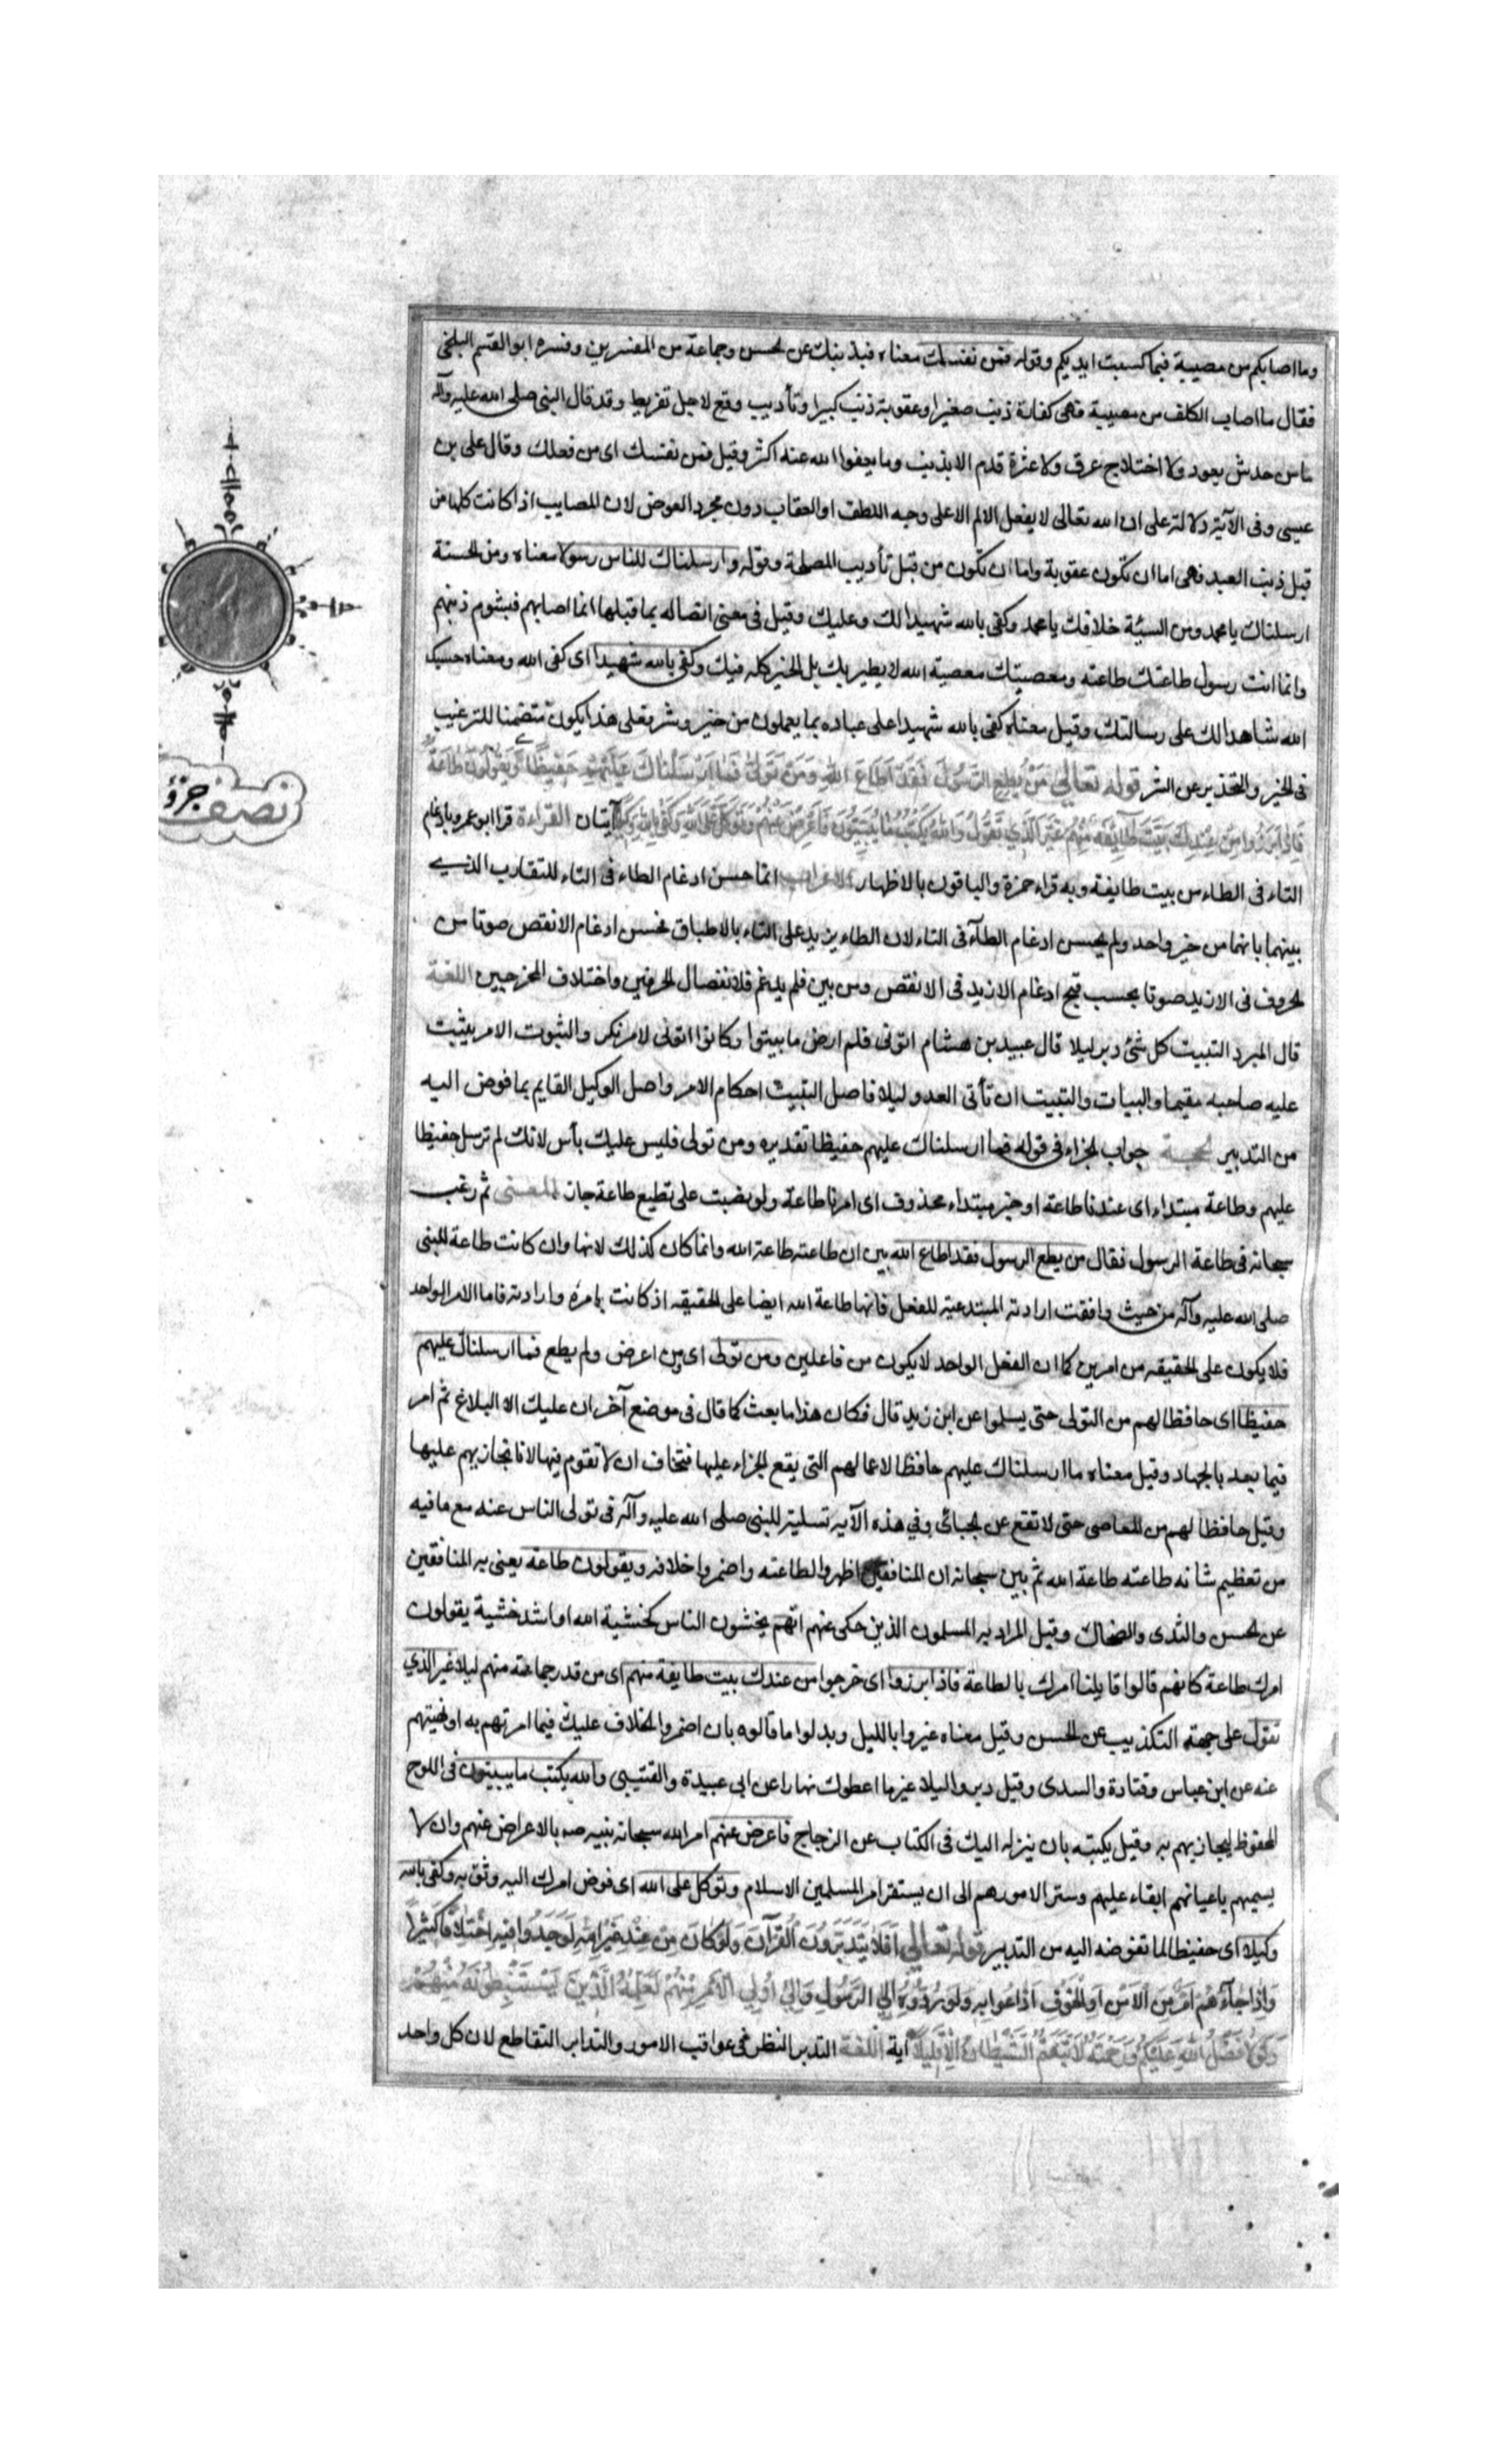 وما اصابكم من مصيبة فبما كسبت ايديكم وقوله فمن نفسك معناه فبذنبك عن الحسن وجماعة من المفسرين وفسره ابو القسم البلخي
فقال ما اصاب المكلف من مصيبة فهى كفارة ذنب صغير او عقوبة ذنب كبير او تأديب وقع لاجل تفريط وقد قال النبى صلى الله عليه وآله
ما من خدش بعود ولا اختلاج عرق ولا عثرة قدم الا بذنب وما يعفوا الله عنه اكثر وقيل فمن نفسك اى من فعلك وقال على بن
عيسى وفى الآية دلالة على ان الله تعالى لا يفعل الالم الا على وجه اللطف او العقاب دون مجرد العوض لان المصايب اذا كانت كلها من
قبل ذنب العبد فهى اما ان تكون عقوبة واما ان تكون من قبل تأديب المصلحة وقوله وارسلناك للناس رسولا معناه ومن الحسنة
ارسلناك يا محمد ومن السيئة خلافك يا محمد وكفى بالله شهيدا لك وعليك وقيل فى معنى اتصاله بما قبلها انما اصابهم فبشوم ذنبهم
وانما انت رسول طاعتك طاعته ومعصيتك معصية الله لا يطير بك بل الخير كله فيك وكفى بالله شهيدا اى كفى الله ومعناه حسبك
الله شاهدا لك على رسالتك وقيل معناه كفى بالله شهيدا على عباده بما يعملون من خير وشر فعلى هذا يكون متضمنا للترغيب
فى الخير والتحذير عن الشر قوله تعالى مَنْ يُطِعِ الرَّسُولَ فَقَدْ اَطَاعَ اللهَ وَمَنْ تَوَلّى فَمَا اَرْسَلْنَاكَ عَلَيْهِمْ حَفِيظًا وَيَقُولُونَ طَاعَةٌ
فَاِذَا بَرَزُوا مِنْ عِنْدِكَ بَيَّتَ طَآئِفَةٌ مِنْهُمْ غَيْرَ الَّذِي تَقُولُ وَاللهُ يَكْتُبُ مَا يُبَيِّتُونَ فَاَعْرِضْ عَنْهُمْ وَتَوَكَّلْ عَلَى اللهِ وَكَفَى بِاللهِ وَكِيلًا آيتان القراءة قرا ابو عمرو بادغام
التاء فى الطاء من بيت طايفة وبه قراء حمزة والباقون بالاظهار الاعراب انما حسن ادغام الطاء فى التاء للتقارب الذى
بينهما بانهما من خير واحد ولم يحسن ادغام الطآء فى التاء لان الطاء يزيد على التاء بالاطباق فحسن ادغام الانقص صوتا من
الحروف فى الازيد صوتا بحسب قبح ادغام الازيد فى الانقص ومن بين فلم يدغم فلانفصال الحرفين واختلاف المخرجين اللغة
قال المبرد التبييت كل شئ دبر ليلا قال عبيد بن هشام اتونى فلم ارض ما بيتوا وكانوا اتونى لامر نكر والثبوت الامر يثبت
عليه صاحبه مقيما والبيات والتبييت ان تأتى العدو ليلا فاصل التبييت احكام الامر واصل الوكيل القايم بما فوض اليه
من التدبير الحجة جواب الجزاء فى قوله فما ارسلناك عليهم حفيظا تقديره ومن تولى فليس عليك بأس لانك لم ترسل حفيظا
عليهم وطاعة مبتداء اى عندنا طاعة او خبر مبتداء محذوف اى امرنا طاعة ولو نصبت على نطيع طاعة جاز المعنى ثم رغب
سبحانه فى طاعة الرسول فقال من يطع الرسول فقد اطاع الله بين ان طاعته طاعة الله وانما كان كذلك لانها وان كانت طاعة للنبى
صلى الله عليه وآله من حيث وافقت ارادته المبتدعية للفعل فانها طاعة الله ايضا على الحقيقه اذ كانت بامره وارادته فاما الامر الواحد
فلا يكون على الحقيقه من امرين كما ان الفعل الواحد لا يكون من فاعلين ومن تولى اى من اعرض ولم يطع فما ارسلناك عليهم
حفيظا اى حافظا لهم من التولى حتى يسلموا عن ابن زيد قال فكان هذا ما بعث كما قال فى موضع آخر ان عليك الا البلاغ ثم امر
فيما بعد بالجهاد وقيل معناه ما ارسلناك عليهم حافظا لاعمالهم التى يقع الجزاء عليها فتخاف ان لا تقوم فيها لانا نجازيهم عليها
وقيل حافظا لهم من المعاصى حتى لا تقع عن الجبائى وفى هذه الآيه تسلية للنبى صلى الله عليه وآله فى تولى الناس عنه مع ما فيه
من تعظيم شانه طاعته طاعة الله ثم بين سبحانه ان المنافقين اظهروا لطاعته واضمروا خلافه ويقولون طاعة يعنى به المنافقين
عن الحسن والثدى والضحاك وقيل المراد به المسلمون الذين حكى عنهم انهم يخشون الناس كخشية الله او اشد خشية يقولون
امرك طاعة كانهم قالوا قابلنا امرك بالطاعة فاذا برزوا اى خرجوا من عندك بيت طايفة منهم اى من قدر جماعته منهم ليلا غير الذى
تقول على جهة التكذيب عن الحسن وقيل معناه غيروا بالليل وبدلوا ما قالوه بان اضمروا الخلاف عليك فيما امرتهم به او نهيتهم
عنه عن ابن عباس وقتادة والسدى وقيل دبروا ليلا غير ما اعطوك نهارا عن ابى عبيدة والقتيبى والله يكتب ما يبيتون فى اللوح
المحفوظ ليجازيهم به وقيل يكتبه بان ينزله اليك فى الكتاب عن الزجاج فاعرض عنهم امر الله سبحانه نبيه صه بالاعراض عنهم وان لا
يسميهم باعيانهم ابقاء عليهم وستر الامورهم الى ان يستقر امر المسلمين الاسلام وتوكل على الله اى فوض امرك اليه وثق به وكفى بالله
وكيلا اى حفيظا لما تفوضه اليه من التدبير قوله تعالى اَفَلَا يَتَدَبَّرُونَ الْقُرْآنَ وَلَوْ كَانَ مِنْ عِنْدِ غَيْرِ اللهِ لَوَجَدُوا فِيهِ اخْتِلَافًا كَثِيرًا
وَاِذَا جَآءَهُمْ اَمْرٌ مِنَ الْاَمْنِ اَوِ الْخَوْفِ اَذَاعُوا بِهِ وَلَوْ رَدُّوهُ اِلَى الرَّسُولِ وَاِلَى اُولِي الْاَمْرِ مِنْهُمْ لَعَلِمَهُ الَّذِينَ يَسْتَنْبِطُونَهُ مِنْهُمْ
وَلَوْلَا فَضْلُ اللهِ عَلَيْكُمْ وَرَحْمَتُهُ لَاتَّبَعْتُمُ الشَّيْطَانَ اِلَّا قَلِيلًا آية اللغة التدبر النظر فى عواقب الامور والتدابر التقاطع لان كل واحد
نصف جزؤ